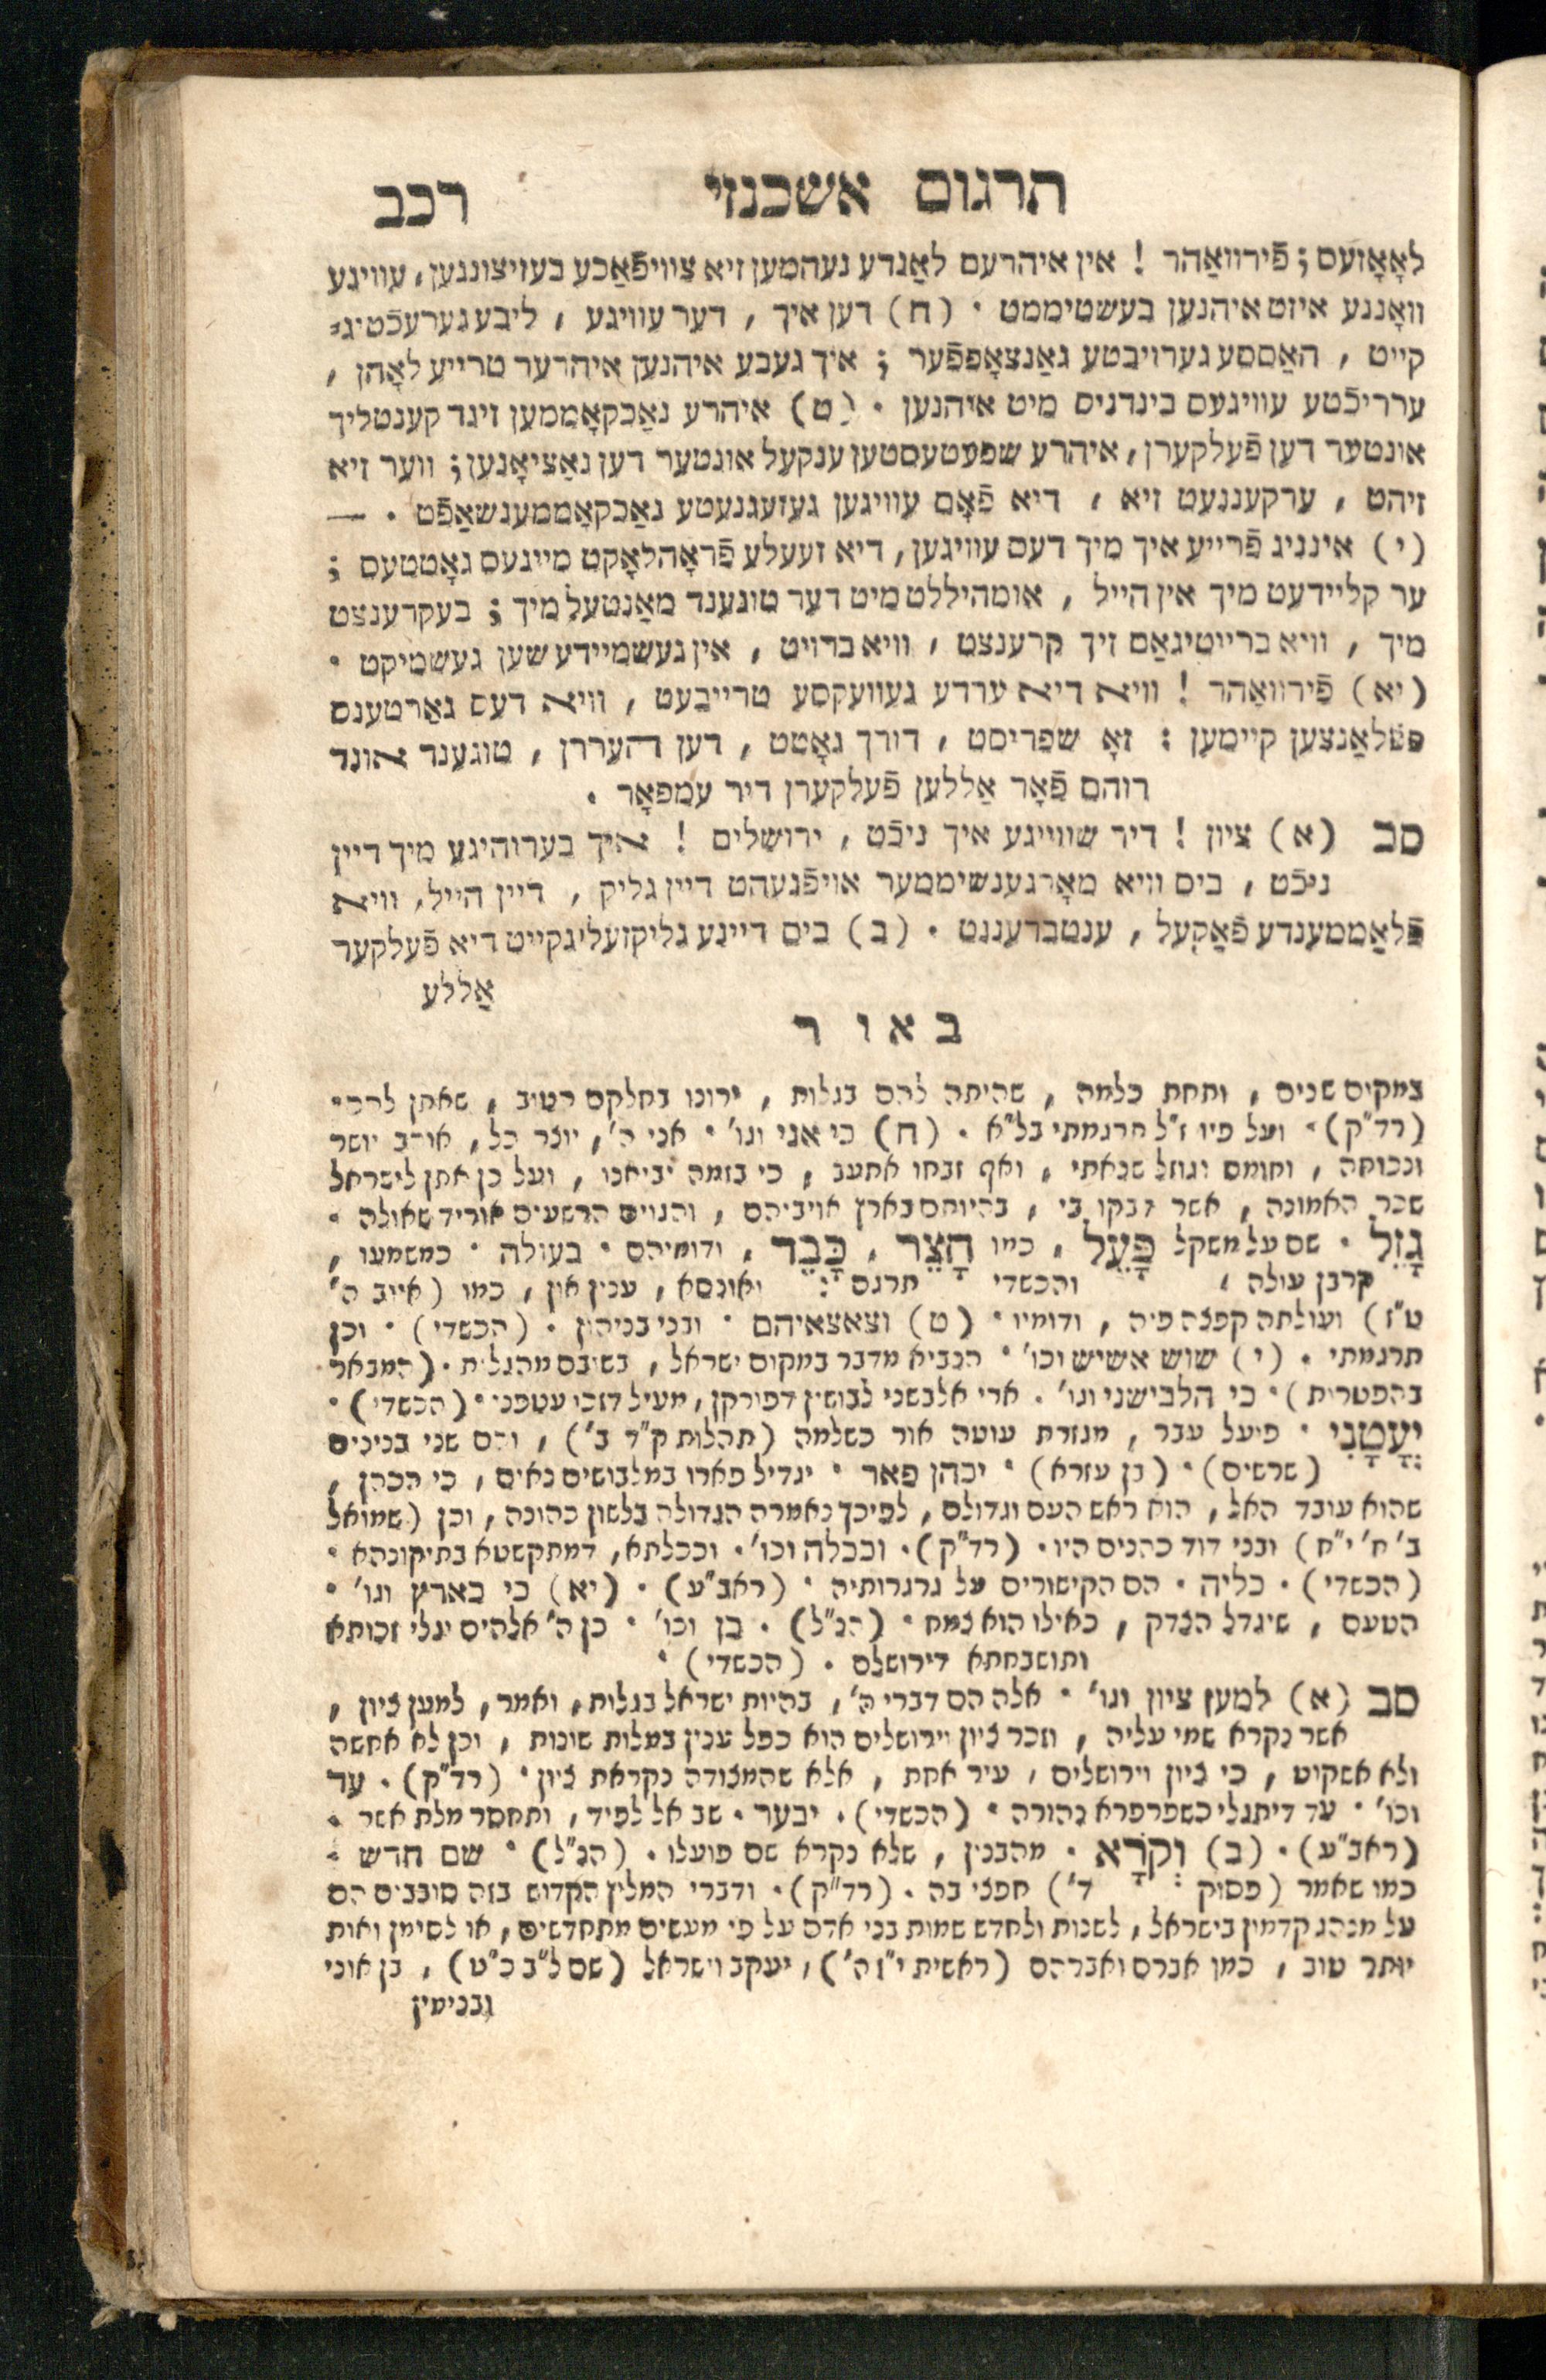 תרגום אשכנזי רכב
לאָאָזעס ; פֿירוואַהר ! אין איהרעם לאַנדע נעהמען זיא צוויפֿאַכע בעזיצונגען , עוויגע
וואָננע איזט איהנען בעשטיממט . (ח) דען איך , דער עוויגע , ליבע גערעכֿטיג=
קייט , האַססע גערויבטע גאַנצאָפּפֿער ; איך געבע איהנען איהרער טרייע לאָהן ,
ערריכֿטע עוויגעס בינדניס מיט איהנען . (ט) איהרע נאַכקאָממען זינד קענטליך
אונטער דען פֿעלקערן , איהרע שפעטעסטען ענקעל אונטער דען נאַציאָנען ; ווער זיא
זיהט , ערקעננעט זיא , דיא פֿאָם עוויגען געזעגנעטע נאַכקאָממענשאַפֿט . —
(י) אינניג פֿרייע איך מיך דעס עוויגען , דיא זעעלע פֿראָהלאָקט מיינעס גאָטטעס ;
ער קליידעט מיך אין הייל , אומהיללט מיט דער טוגענד מאַנטעל מיך ; בעקרענצט
מיך , וויא ברייטיגאַם זיך קרענצט , וויא ברויט , אין געשמיידע שען געשמיקט .
(יא) פֿירוואַהר ! וויא דיא ערדע געוועקסע טרייבעט , וויא דעס גאַרטענס
פפֿלאַנצען קיימען : זאָ שפריסט , דורך גאָטט , דען העררן , טוגענד אונד
רוהם פֿאָר אַללען פֿעלקערן דיר עמפאָר .
סב (א) ציון ! דיר שווייגע איך ניכֿט , ירושלים ! איך בערוהיגע מיך דיין
ניכֿט , ביס וויא מאָרגענשיממער אויפֿגעהט דיין גליק , דיין הייל , וויא
פֿלאַממענדע פֿאַקעל , ענטברעננט . (ב) ביס דיינע גליקזעליגקייט דיא פֿעלקער
אַללע
באור
במקום שנים , ותחת כלמה , שהיתה להם בגלות , ירונו בחלקם הטוב , שאתן להם .
(רד"ק) . ועל פיו ז"ל תרגמתי בל"א . (ח) כי אני וגו' . אני ה' , יוצר כל , אוהב יושר
ונכוחה , וחומס וגוזל שנאתי , ואף זבחו אתעב , כי בזמה יביאנו , ועל כן אתן לישראל
שכר האמונה , אשר דבקו בי , בהיותם בארץ אויביהם , והגוים הרשעים אוריד שאולה .
גָזֵל . שם על משקל פָּעֵל , כמו חָצֵר , כָּבֵד , ודומיהם . בעולה . כמשמעו ,
קרבן עולה , והכשדי תרגם : ואונסא , ענין און , כמו (אייוב ה'
ט"ז) ועולתה קפצה פיה , ודומיו . (ט) וצאצאיהם . ובני בניהון . (הכשדי) . וכן
תרגמתי . (י) שוש אשיש וכו' . הנביא מדבר במקום ישראל , בשובם מהגלות . (המבאר
בהפטרות) . כי הלבישני וגו' . ארי אלבשני לבושין דפורקן , מעיל דזכו עטפני . (הכשדי) .
יְעָטָנִי . פיעל עבר , מגזרת עוטה אור כשלמה (תהלות ק"ד ב') , והם שני בנינים
(שרשים) . (בן עזרא) . יכהן פאר . יגדיל פארו במלבושים נאים , כי הכהן ,
שהוא עובד האל , הוא ראש העם וגדולם , לפיכך נאמרה הגדולה בלשון כהונה , וכן (שמואל
ב' ח' י"ח) ובני דוד כהנים היו . (רד"ק) . וככלה וכו' . וככלתא , דמתקשטא בתיקונהא .
(הכשדי) . כליה . הם הקישורים על גרגרותיה . (ראב"ע) . (יא) כי כארץ וגו' .
הטעם , שיגדל הצדק , כאילו הוא צמח . (הנ"ל) . כן וכו' . כן ה' אלהים יגלי זכותא
ותושבחתא דירושלם . (הכשדי) .
סב (א) למען ציון וגו' . אלה הם דברי ה' , בהיות ישראל בגלות , ואמר , למען ציון ,
אשר נקרא שמי עליה , וזכר ציון וירושלים הוא כפל ענין במלות שונות , וכן לא אחשה
ולא אשקוט , כי ציון וירושלים , עיר אחת , אלא שהמצודה נקראת ציון . (רד"ק) . עד
וכו' . עד דיתגלי כשפרפרא נהורה . (הכשדי) . יבער . שב אל לפיד , ותחסר מלת אשר .
(ראב"ע) . (ב) וְקֹרָא . מהבנין , שלא נקרא שם פועלו . (הנ"ל) . שם חדש :
כמו שאמר (פסוק ד') חפצי בה . (רד"ק) . ודברי המליץ הקדוש בזה סובבים הם
על מנהג קדמון בישראל , לשנות ולחדש שמות בני אדם על פי מעשים מתחדשים , או לסימן ואות
יותר טוב , כמו אברם ואברהם (ראשית י"ז ה') , יעקב וישראל (שם ל"ב כ"ט) , בן אוני
ובנימין